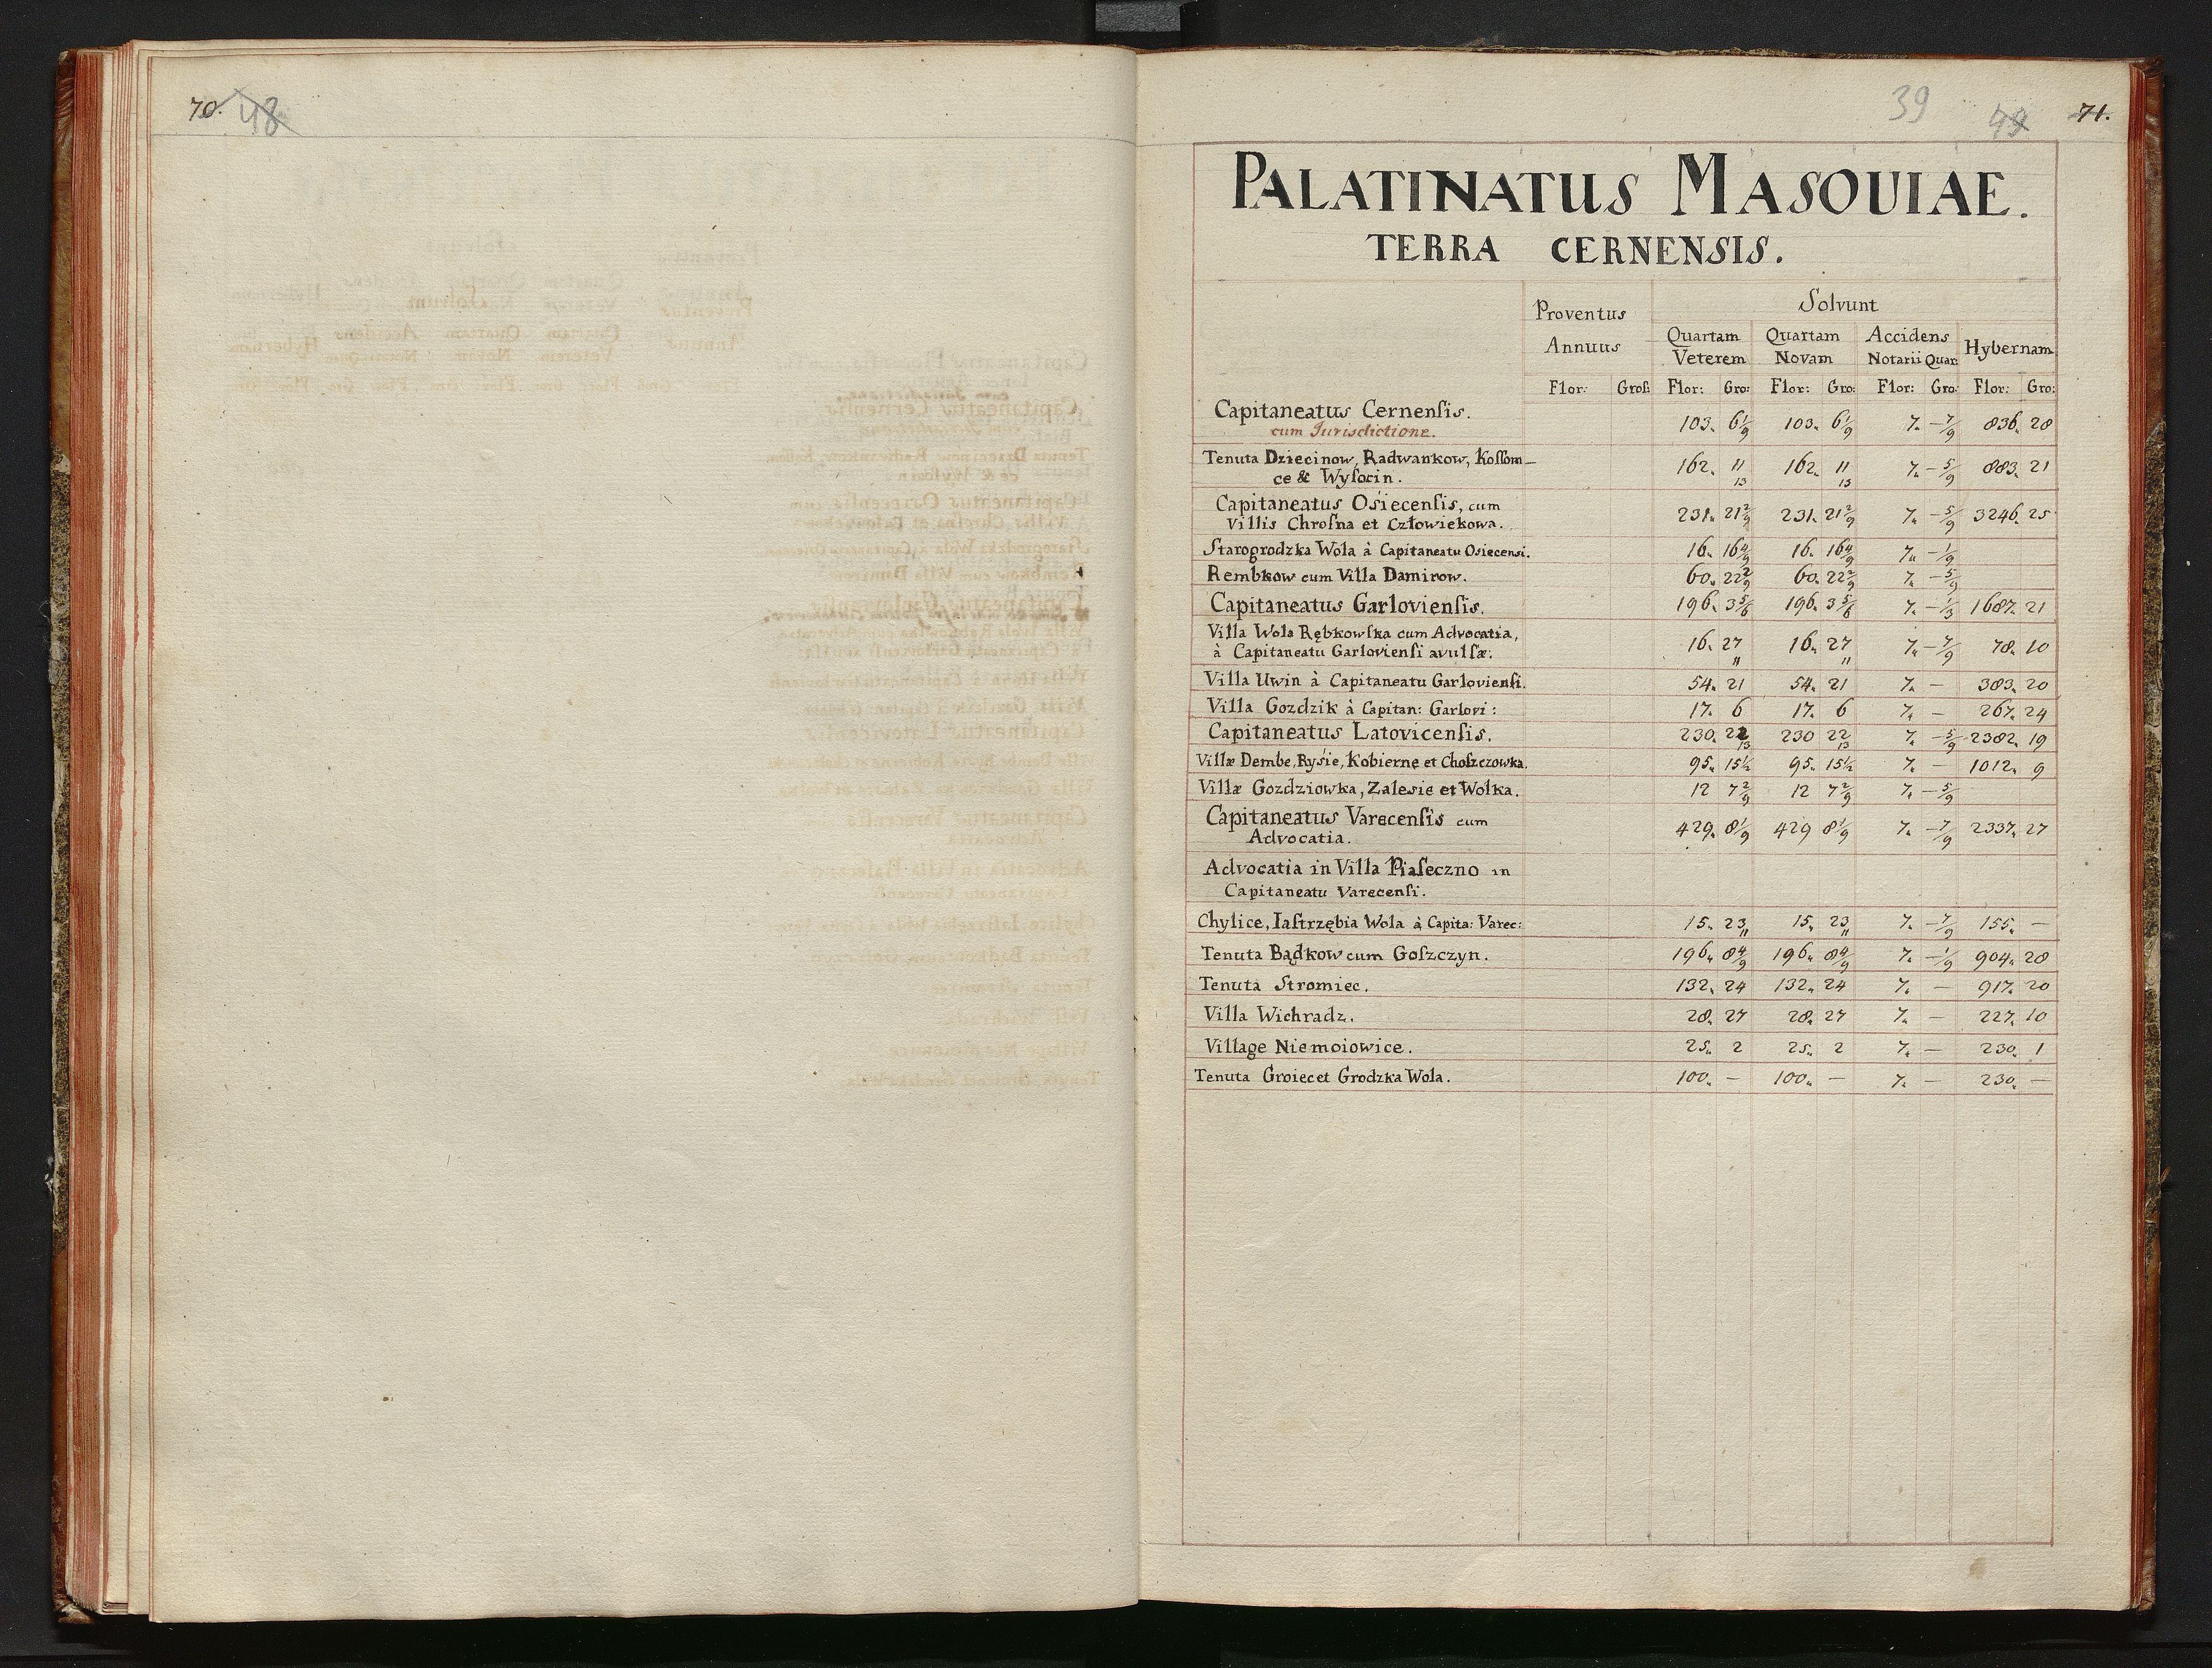 70. 48
39 49 71.
PALATINATUS MASOUIAE.
TERRA CERNENSIS.
Proventus Annuus
Solvunt
Quartam Veterem Quartam Novam Accidens Notarii Quar: Hybernam
Flor: Groß: Flor: Gro: Flor: Gro: Flor: Gro: Flor: Gro:
Capitaneatus Cernenſis.
cum Jurisdictione. 103. 6 1/9 103. 6 1/9 7. – 7/9 836. 28
Tenuta Dziecinow, Radwankow, Koſſom–
ce & Wyſocin. 162. 11/13 162. 11/13 7. – 5/9 883. 21
Capitaneatus Osiecenſis, cum
Villis Chroſna et Człowiekowa. 231. 21 2/9 231. 21 2/9 7. – 5/9 3246. 25
Starogrodzka Wola à Capitaneatu Osiecensi. 16. 16 4/9 16. 16 4/9 7. – 1/9
Rembkow cum Villa Damirow. 60. 22 2/9 60. 22 2/9 7. – 5/9
Capitaneatus Garlovienſis. 196. 3 5/6 196. 3 5/6 7. – 1/3 1687. 21
Villa Wola Rębkowſka cum Advocatia,
à Capitaneatu Garlovienſi avulſæ: 16. 27/11 16. 27/11 7. – 7/9 78. 10
Villa Uwin à Capitaneatu Garlovienſi. 54. 21 54. 21 7. – 383. 20
Villa Gozdzik à Capitan: Garlovi: 17. 6 17. 6 7. – 267. 24
Capitaneatus Latovicenſis. 230. 22/13 230 22/13 7. – 5/9 2382. 19
Villæ Dembe, Ryśie, Kobierne et Choſzczowka. 95. 15 1/2 95. 15 1/2 7. – 1012. 9
Villæ Gozdziowka, Zalesie et Wolka. 12 7 2/9 12 7 2/9 7. – 5/9
Capitaneatus Varecenſis cum
Advocatia. 429. 8 1/9 429 8 1/9 7. – 7/9 2337. 27
Advocatia in Villa Piaſeczno in
Capitaneatu Varecenſi.
Chylice, Iaſtrzębia Wola à Capita: Varec: 15. 23/11 15. 23/11 7. – 7/9 155. –
Tenuta Bądkow cum Goſzczyn. 196. 8 4/9 196. 8 4/9 7. – 1/9 904. 28
Tenuta Stromiec. 132. 24 132. 24 7. – 917. 20
Villa Wichradz. 28. 27 28. 27 7. – 227. 10
Village Niemoiowice. 25. 2 25. 2 7. – 230. 1
Tenuta Groiec et Grodzka Wola. 100. – 100. – 7. – 230. –